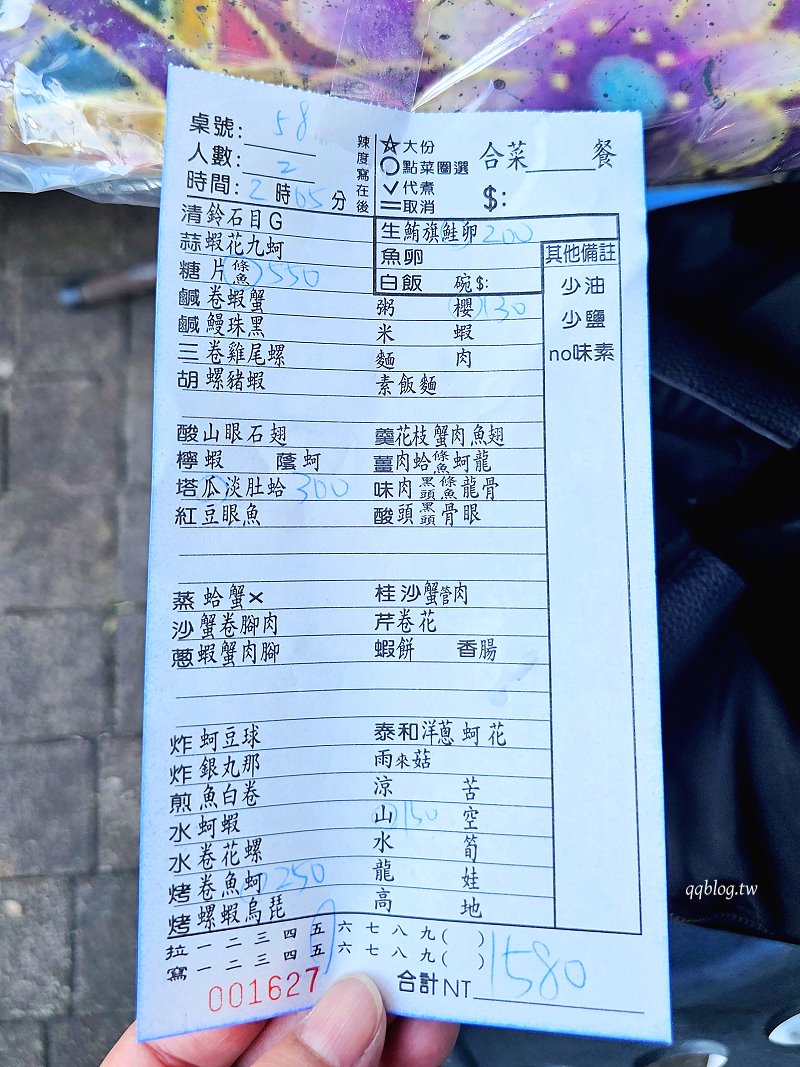 桌號: 58
人數: 2
時間: 2 時 05 分
辣度寫在後
☆大份
○點菜圈選
✓代煮
=取消
合菜_____餐
$:
清 鈴石目G
蒜 蝦花九蚵
糖 片 條魚 550
鹹 卷蝦蟹
鹹 鰻珠黑
三 卷雞尾螺
胡 螺豬蝦
生 鮪旗鮭卵 200
魚卵
白飯 碗$:
粥 櫻 130
米 蝦
麵 肉
素飯麵
其他備註
少油
少鹽
no味素
酸 山眼石翅
檸 蝦 蔭 蚵
塔 瓜淡肚蛤 300
紅 豆眼魚
羹 花枝蟹肉魚翅
薑 肉蛤 條魚 蚵龍
味 肉 黑頭 條魚 龍骨
酸 頭 黑頭 骨眼
蒸 蛤蟹×
沙 蟹卷腳肉
蔥 蝦蟹肉腳
桂 沙蟹管肉
芹 卷花
蝦餅 香腸
炸 蚵豆球
炸 銀丸那
煎 魚白卷
水 蚵蝦
水 卷花螺
烤 卷魚蚵 250
烤 螺蝦烏琵
泰和洋蔥 蚵 花
雨來菇
涼 苦
山 150 空
水 筍
龍 娃
高 地
拉 一 二 三 四 五 六 七 八 九 ( )
寫 一 二 三 四 五 六 七 八 九 ( )
001627
合計NT 1580
qqblog.tw